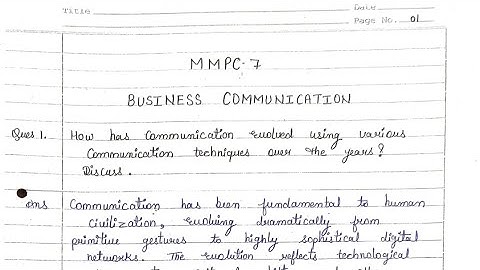 Title
Date
Page No. 01
MMPC-7
BUSINESS COMMUNICATION
Ques 1. How has Communication evolved using various
Communication techniques over the years?
Discuss.
Ans Communication has been fundamental to human
civilization, evolving dramatically from
primitive gestures to highly sophistical digital
networks. The evolution reflects technological